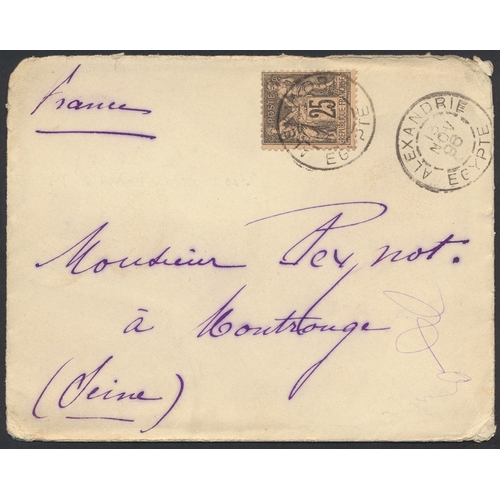 France
POSTE
25
REPUBLIQUE FRANÇAISE
EGYPTE
ALEXANDRIE
13
NOV
96
EGYPTE
Monsieur Peynot.
à Montrouge
(Seine)